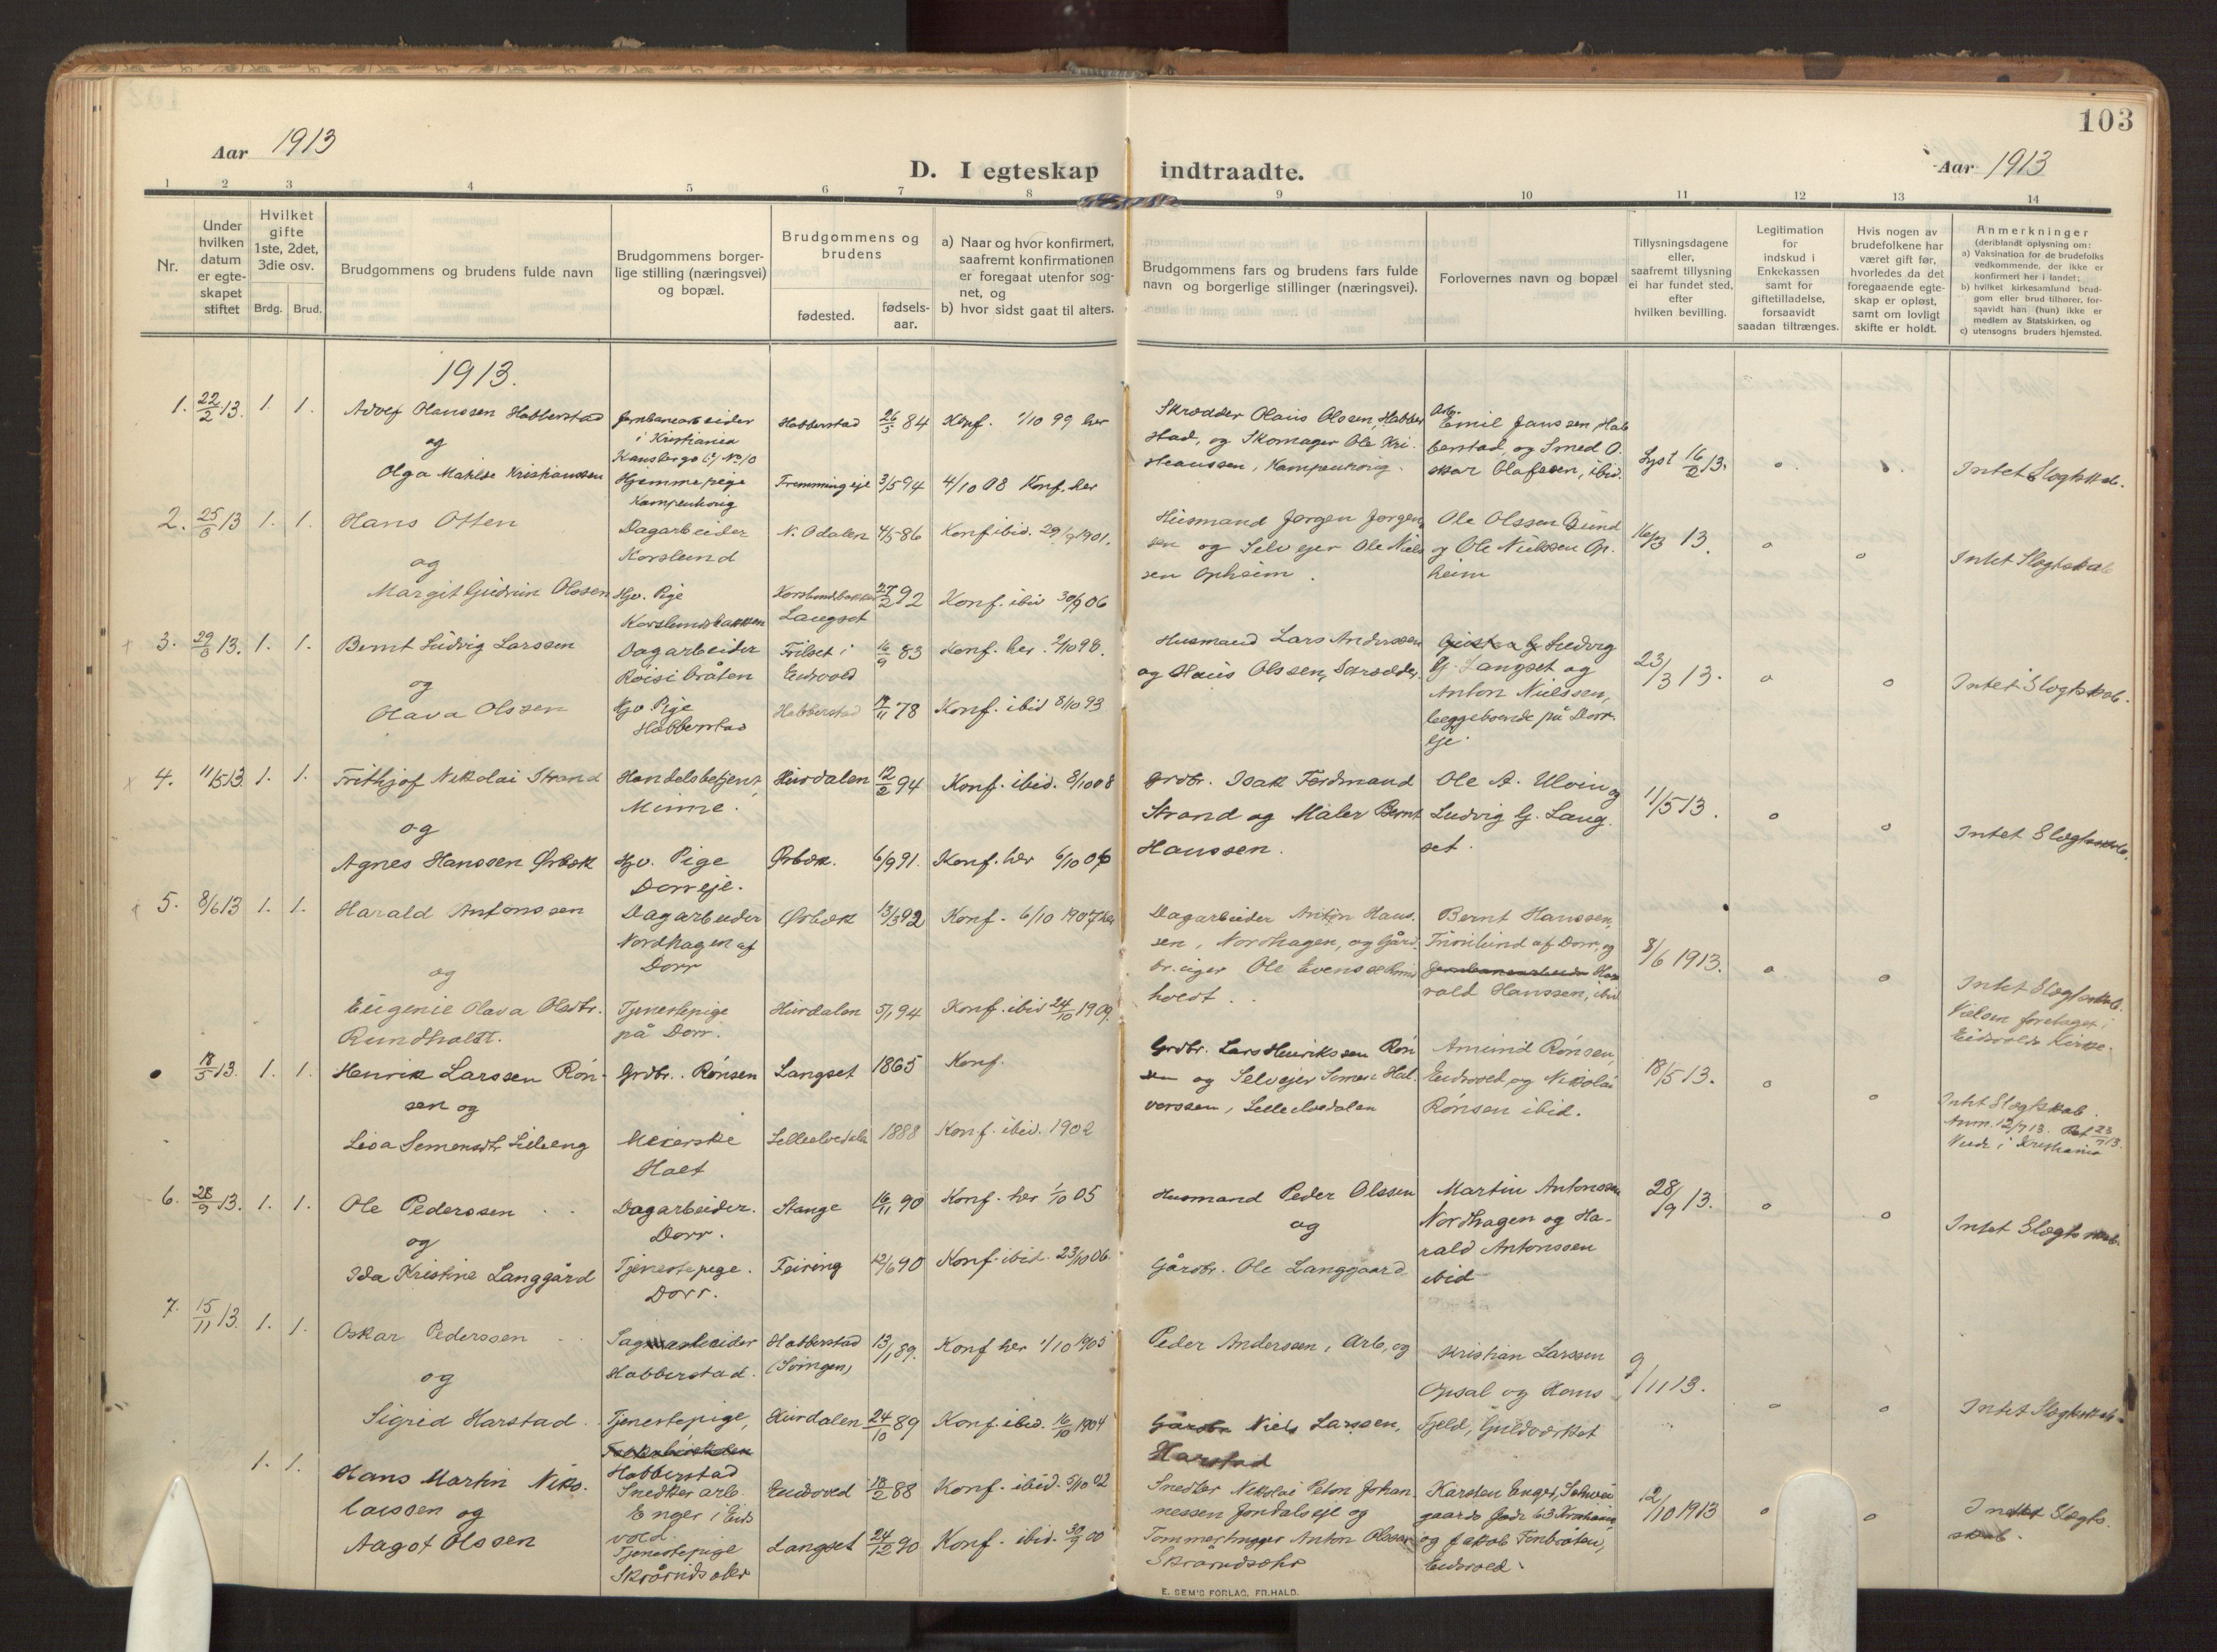 103
Aar 1913
D. I egteskap indtraadte.
Aar 1913
1 2 3 4 5 6 7 8 9 10 11 12 13 14
Nr.
Under hvilken datum er egteskapet stiftet
Hvilket gifte 1ste, 2det, 3die osv.
Brdg. Brud.
Brudgommens og brudens fulde navn
Brudgommens borgerlige stilling (næringsvei) og bopæl.
Brudgommens og brudens
fødested.
fødsels-aar.
a) Naar og hvor konfirmert, saafremt konfirmationen er foregaat utenfor sognet, og
b) hvor sidst gaat til alters.
Brudgommens fars og brudens fars fulde navn og borgerlige stillinger (næringsvei).
Forlovernes navn og bopæl
Tillysningsdagene eller, saafremt tillysning ei har fundet sted, efter hvilken bevilling.
Legitimation for indskud i Enkekassen samt for giftetilladelse, forsaavidt saadan tiltrænges.
Hvis nogen av brudefolkene har været gift før, hvorledes da det foregaaende egteskap er opløst, samt om lovligt skifte er holdt.
Anmerkninger
(deriblandt oplysning om:
a) Vaksination for de brudefolks vedkommende, der ikke er konfirmert her i landet;
b) hvilket kirkesamlund brudgom eller brud tilhører, forsaavidt han (hun) ikke er medlem av Statskirken, og
c) utensogns bruders hjemsted.
1913.
1. 22/2 13. 1. 1. Adolf Olaussen Habberstad
og
Olga Mathilde Kristianssen
Jernbanearbeider
i Kristiania
Hjemmepige
Habberstad 26/5 84 Konf. 1/10 99 her
3/5 94 4/10 08 Konf. her
Skrædder Olaus Olssen, Habberstad, og Skomager Ole Kristiaussen
Emil Janssen, Habberstad, og Smed Oskar Olafssen, ibid.
Lyst 16/2 13. o Intet Slegtskab.
2. 25/3 13 1. 1. Hans Otten
og
Margit Gudrun Olssen
Dagarbeider
Korslund
Hjv. Pige
Korslundbakken
N. Odalen 4/5 86 Konf ibid. 29/9 1901.
Korslundbakken
Langset 27/2 92 Konf. ibid 30/9 06
Husmand Jørgen Jørgensen og Selvejer Ole Nielssen Opheim.
Ole Olssen
og Ole Nielssen Opheim
16/3 13. o o Intet Slegtskab
3. 29/3 13. 1. 1. Bernt Ludvig Larssen
og
Olava Olssen
Dagarbeider
Hjv Pige
Habberstad
Eidsvold 16/9 83 Konf. her. 2/10 98.
Habberstad 78 Konf. ibid 8/10 93
Husmand Lars Anderssen
og Olaus Olssen, Skrædder.
Ludvig
G. Langset og
Anton Nielssen,
beggeboende på Dorr
eje.
23/3 13. o o Intet Slegtskab.
4. 11/5 13. 1. 1. Frithjof Nikolai Strand
og
Agnes Hanssen Ørbæk
Handelsbetjent,
Minne.
Hjv. Pige
Dorreje.
Hurdalen 12/2 94 Konf. ibid. 8/10 08
Ørbæk. 6/9 91. Konf. her 6/10 06
Grdbr. Isak Ferdinand
Strand og Maler Bernt
Hanssen.
Ole A. Ulvin og
Ludvig G. Langset.
11/5 13. o o Intet Slegtskab.
5. 8/6 13 1. 1. Harald Antonssen
og
Eugenie Olava Olsdtr.
Rundholdt.
Dagarbeider
Nordhagen af
Dorr
Tjenestepige
på Dorr.
Ørbæk 13/3 92 Konf. 6/10 1907 her
Hurdalen 5/1 94 Konf. ibid 24/10 1909.
Dagarbeider Anton Hanssen, Nordhagen, og Gårdbr. eiger Ole Evenssen
holdt.
Bernt Hanssen,
af Dorr, og
Harald Hanssen, ibid
8/6 1913. o o Intet Slegtskab.
Vielsen foretaget i
Eidsvolds Kirke.
18/5 13. 1. 1. Henrik Larssen Rønsen og
Lisa Simensdtr. Lilleeng
Grdbr. Rønsen
Meierske
Holt
Langset 1865 Konf.
Lilleelvedalen 1888 Konf. ibid. 1902
Grdbr. Lars Henrikssen Rønsen og Selvejer Simen Halvorssen, Lilleelvedalen
Amund Rønsen,
Eidsvold, og Nikolai
Rønsen ibid.
18/5 13. o o Intet Slegtskab.
Anm. 12/7 13.
6. 28/9 13. 1. 1. Ole Pederssen
og
Ida Kristine Langgård
Dagarbeider.
Dorr.
Tjenestepige.
Dorr.
Stange 16/11 90 Konf. her 1/10 05
Feiring 12/6 90 Konf. ibid. 23/10 06.
Husmand Peder Olssen
og
Gårdbr. Ole Langgaard.
Martin Antonssen
Nordhagen og Harald Antonssen
ibid
28/9 13. o o Intet Slegtskab.
7. 15/11 13. 1. 1. Oskar Pederssen
og
Sigrid Harstad
Sagarbeider
Habberstad.
Tjenestepige,
Habberstad
Habberstad
(Svingen) 13/1 89. Konf her 1/10 1905
Hurdalen 24/10 89 Konf. ibid. 16/10 1904
Peder Anderssen, Arb., og
Gårdbr Niels Larssen,
Harstad
Kristian Larssen
Opsal og Hans
Fjeld, Guldværket
9/11 13. o o Intet Slegtskab.
1. 1. Hans Martin Nikolaissen og
Aagot Olssen
Snedker arb.
Enger i Eidsvold.
Tjenestepige
Eidsvold 18/2 88 Konf. ibid. 5/10 02
Langset 24/12 90 Konf. ibid. 30/9 00
Snedker Nikolai Johannessen Jondalseje og
Tømmerhugger Anton Olssen
Karsten Enger,
og Jakob Finbråten,
Eidsvold.
12/10 1913 o o Intet Slegtskab.
E. SEM'S FORLAG, FR.HALD.